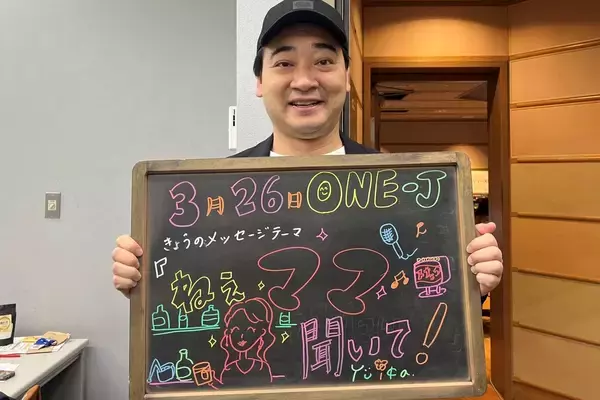 3月26日 ONE-J
きょうのメッセージテーマ
『ねぇママ
聞いて!
Yuika.